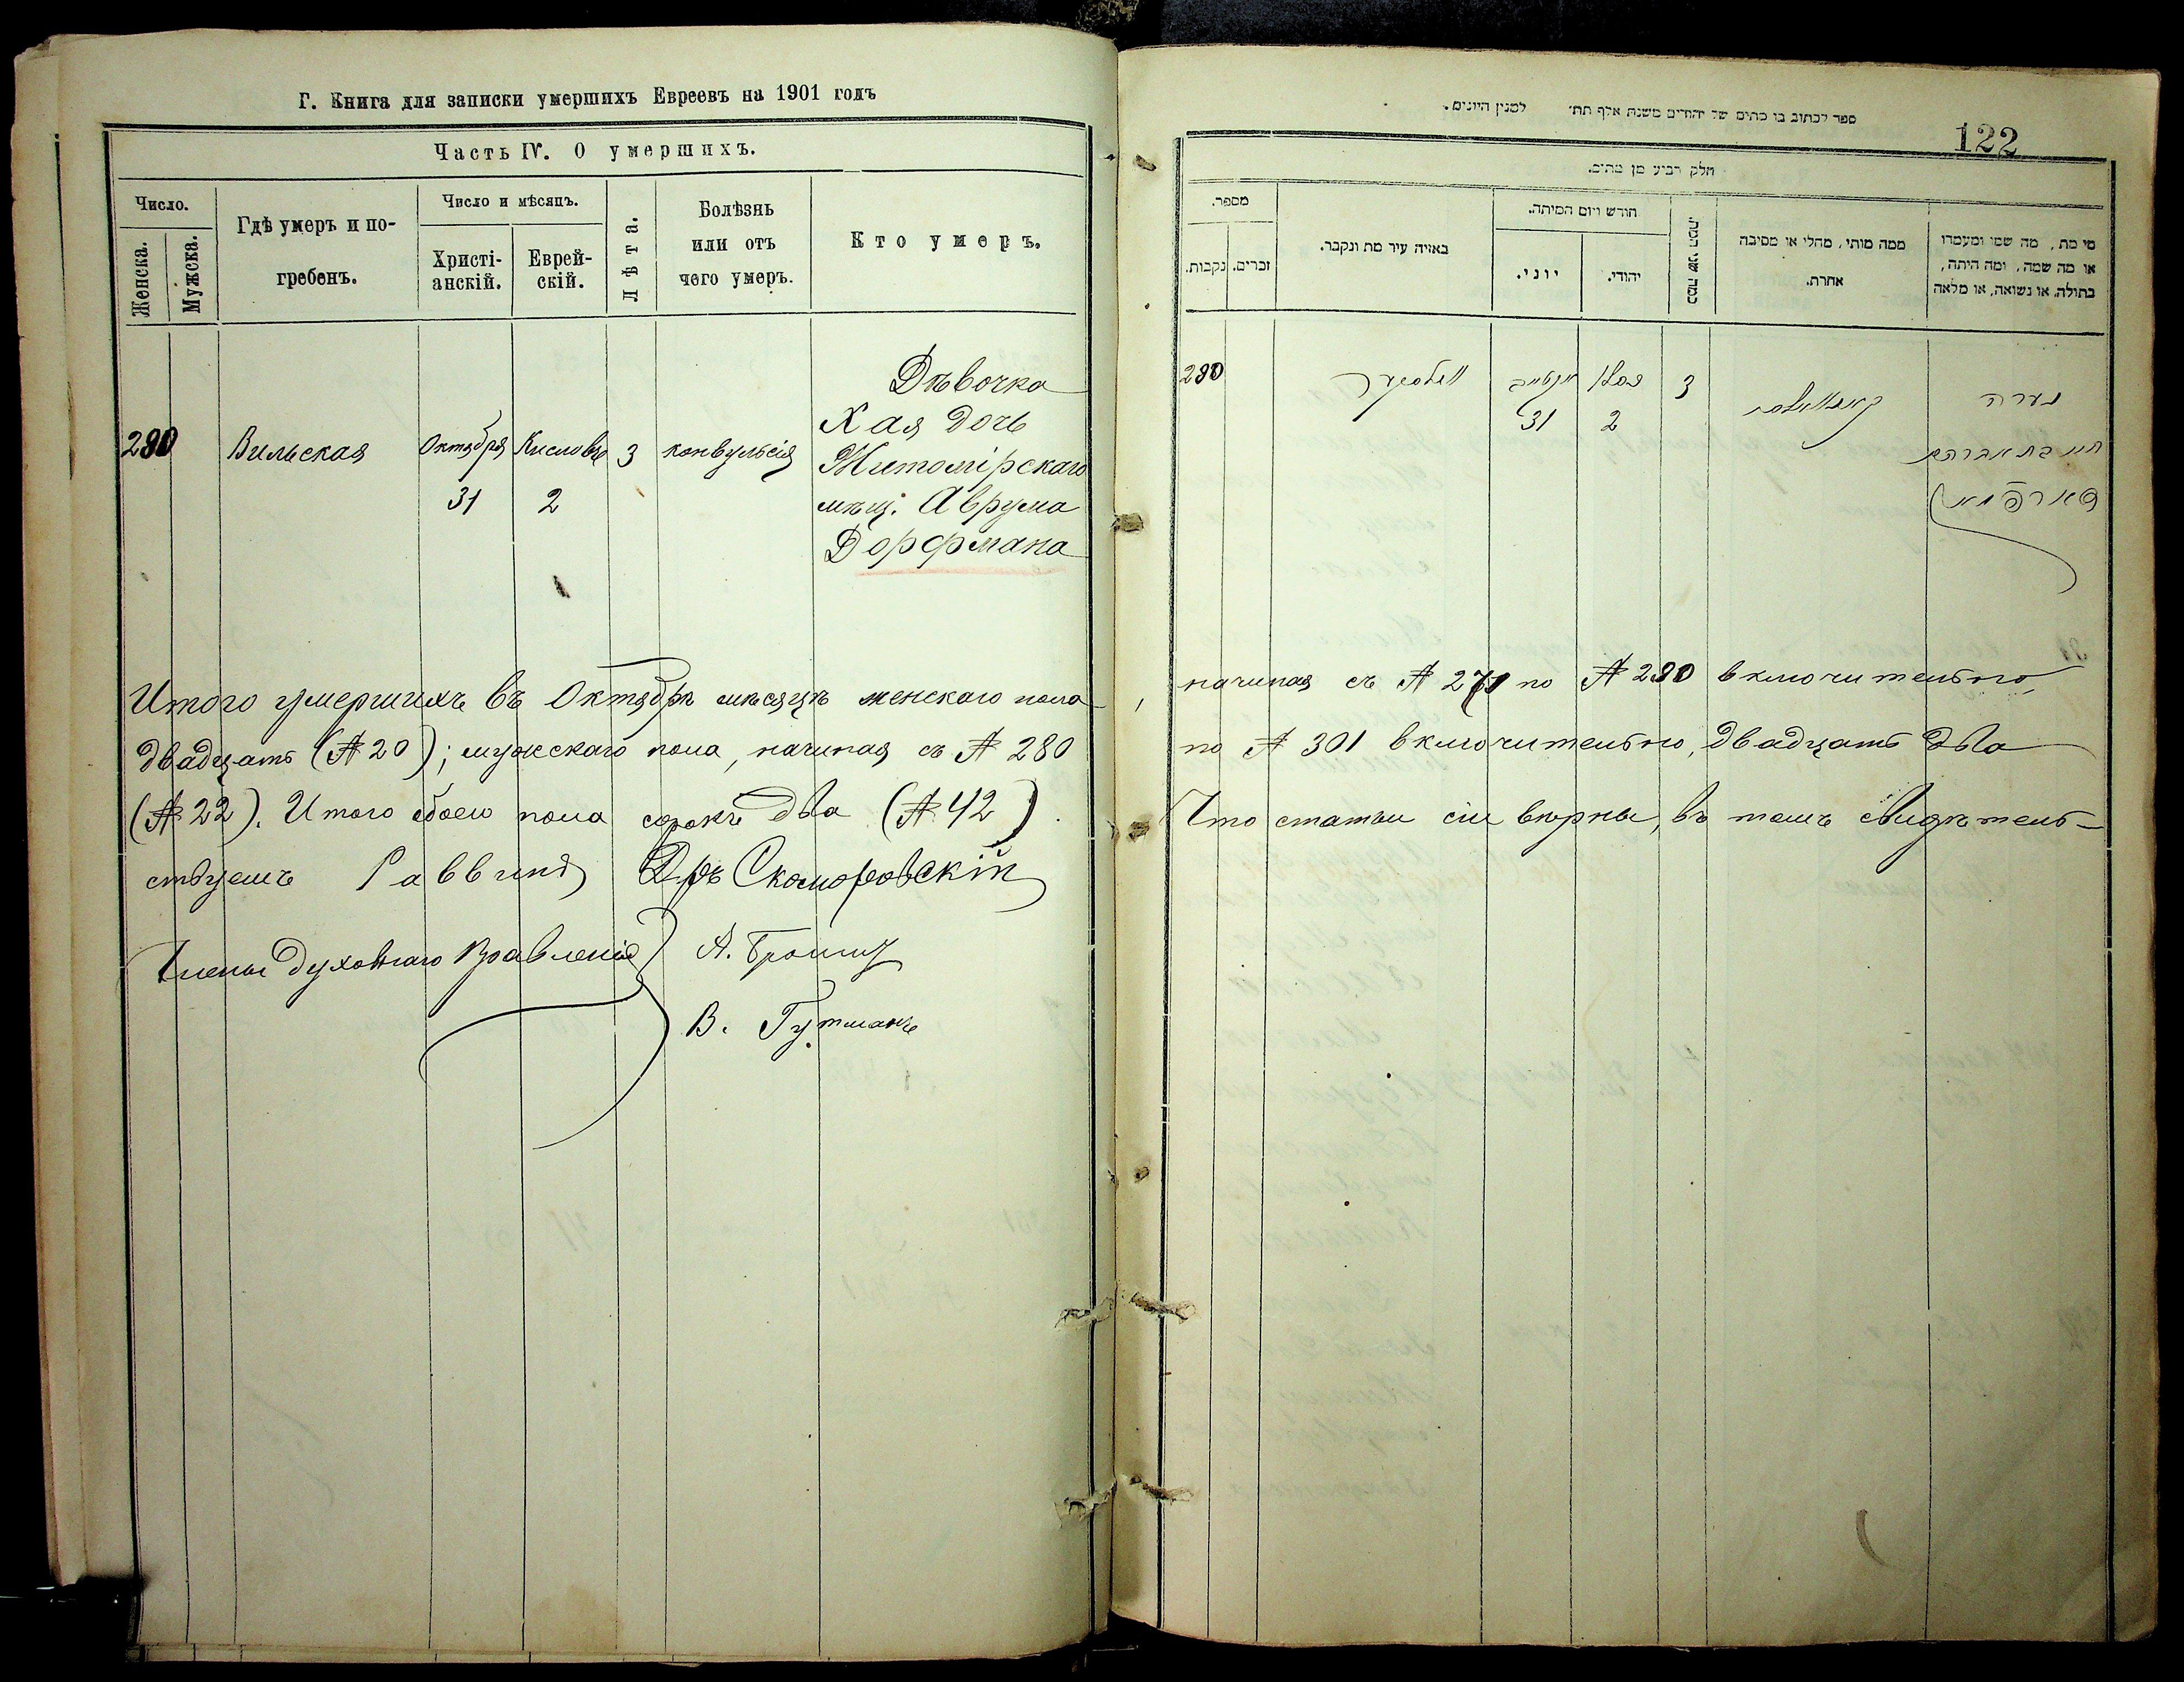 Г. Книга для записки умершихъ Евреевъ на 1901 годъ
Часть IV. О умершихъ.
Число.
Женска.
Мужска.
Гдѣ умеръ и по-
гребенъ.
Число и мѣсяцъ.
Христі-
анскій.
Еврей-
скій.
Лѣта.
Болѣзнь
или отъ
чего умеръ.
Кто умеръ.
280 Вильская Октября 31 Кислова 2 3 конвульсія
Дѣвочка
Хая дочь
Житомірскаго
мѣщ. Аврума
Дорфмана
ספר לכתוב בו מתים של יהודים משנת אלף תת׳ למנין היונים.
122
חלק רביע מן מתים.
מספר.
נקבות.
זכרים.
באיזה עיר מת ונקבר.
חודש ויום המיתה.
יוני.
יהודי.
כמה שני המת.
ממה מותי, מחלי או מסיבה
אחרת.
מי מת, מה שמו ומעמדו
או מה שמה, ומה היתה,
בתולה, או נשואה, או מלאה
280 31 2 3
נערה
חי׳ בת אברהם
Итого умершихъ въ Октябрѣ мѣсяцѣ женскаго пола, начиная съ № 271 по № 280 включительно,
двадцать (№ 20); мужскаго пола, начиная съ № 280 по № 301 включительно, двадцать два
(№ 22). Итого обоего пола сорокъ два (№ 42). Что статьи сіи вѣрны, въ томъ свидѣтель-
ствуемъ Раввинъ Д-ръ Скоморовскій
Члены духовнаго Правленія
В. Гутманъ